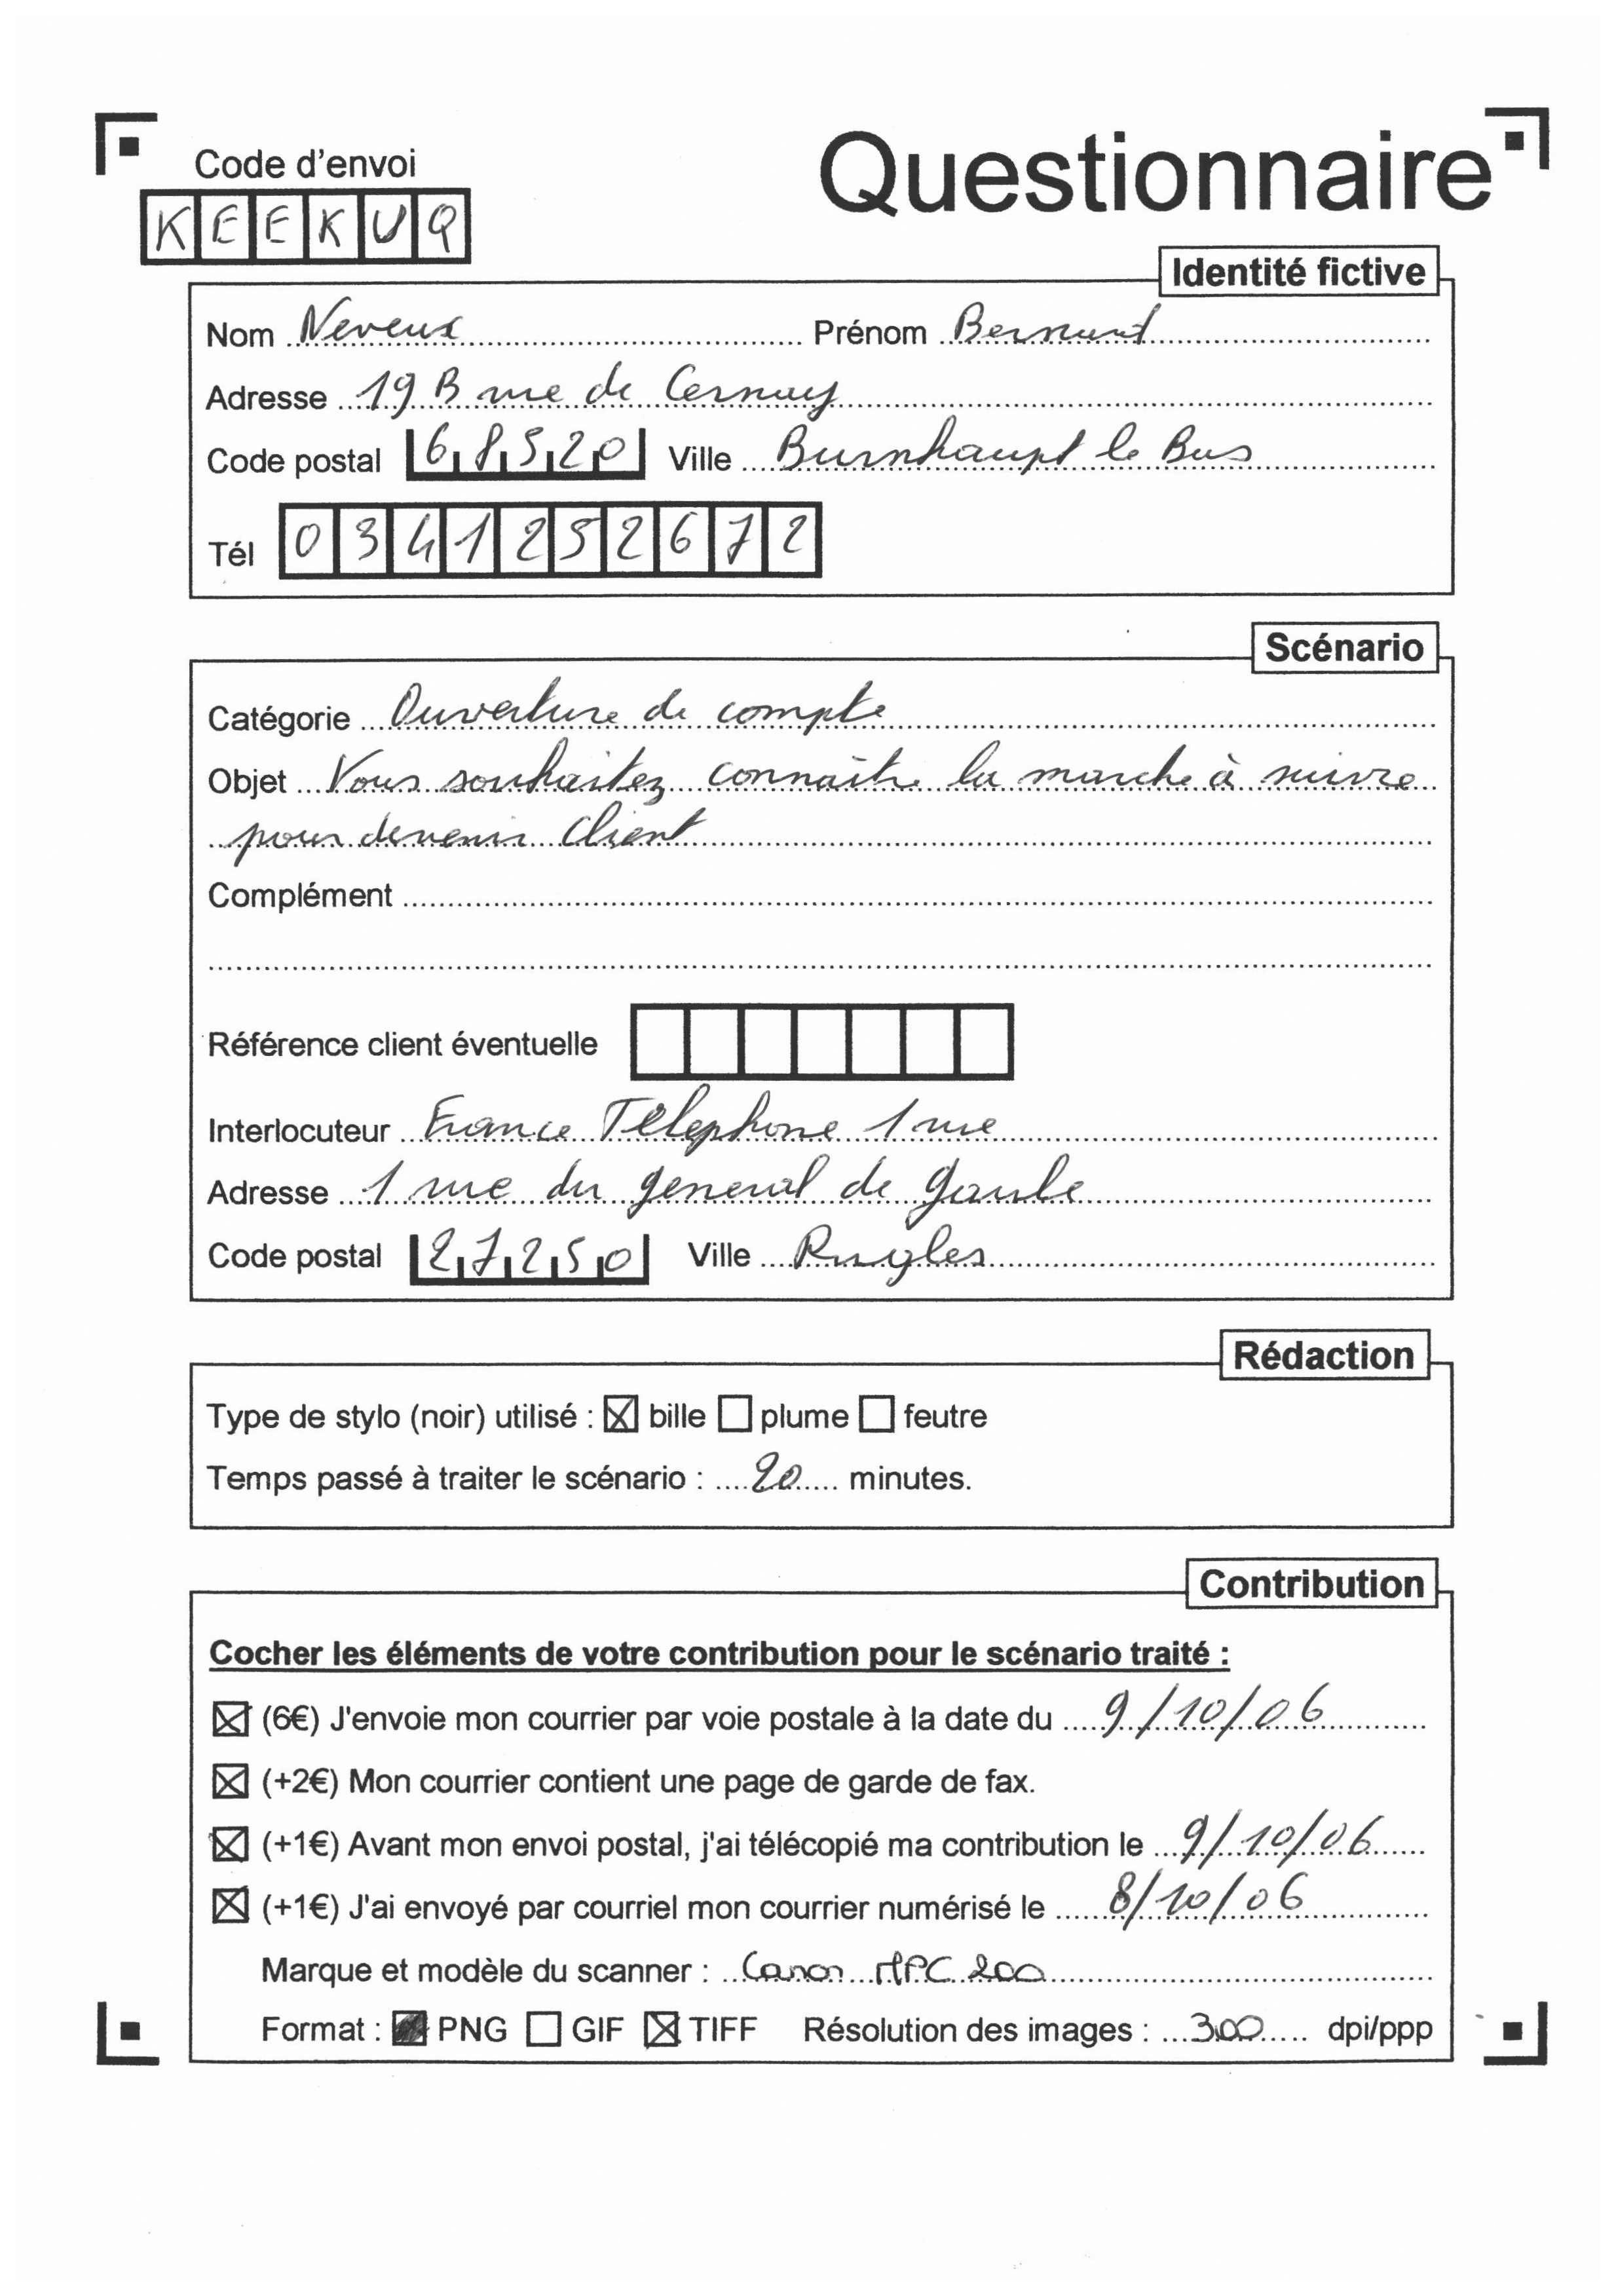 Code d'envoi
KEEKUQ
Questionnaire
Identité fictive
Nom Neveux Prénom Bernard
Adresse 19 B rue de Cernay
Code postal 68520 Ville Burnhaupt le Bas
Tél 0341252672
Scénario
Catégorie Ouverture de compte
Objet Vous souhaitez connaître la marche à suivre
pour devenir client
Complément
Référence client éventuelle
Interlocuteur France Telephone 1 rue
Adresse 1 rue du general de gaule
Code postal 27250 Ville Rugles
Rédaction
Type de stylo (noir) utilisé : bille plume feutre
Temps passé à traiter le scénario : 20 minutes.
Contribution
Cocher les éléments de votre contribution pour le scénario traité :
(6€) J'envoie mon courrier par voie postale à la date du 9/10/06
(+2€) Mon courrier contient une page de garde de fax.
(+1€) Avant mon envoi postal, j'ai télécopié ma contribution le 9/10/06
(+1€) J'ai envoyé par courriel mon courrier numérisé le 8/10/06
Marque et modèle du scanner : Canon MPC 200
Format : PNG GIF TIFF Résolution des images : 300 dpi/ppp